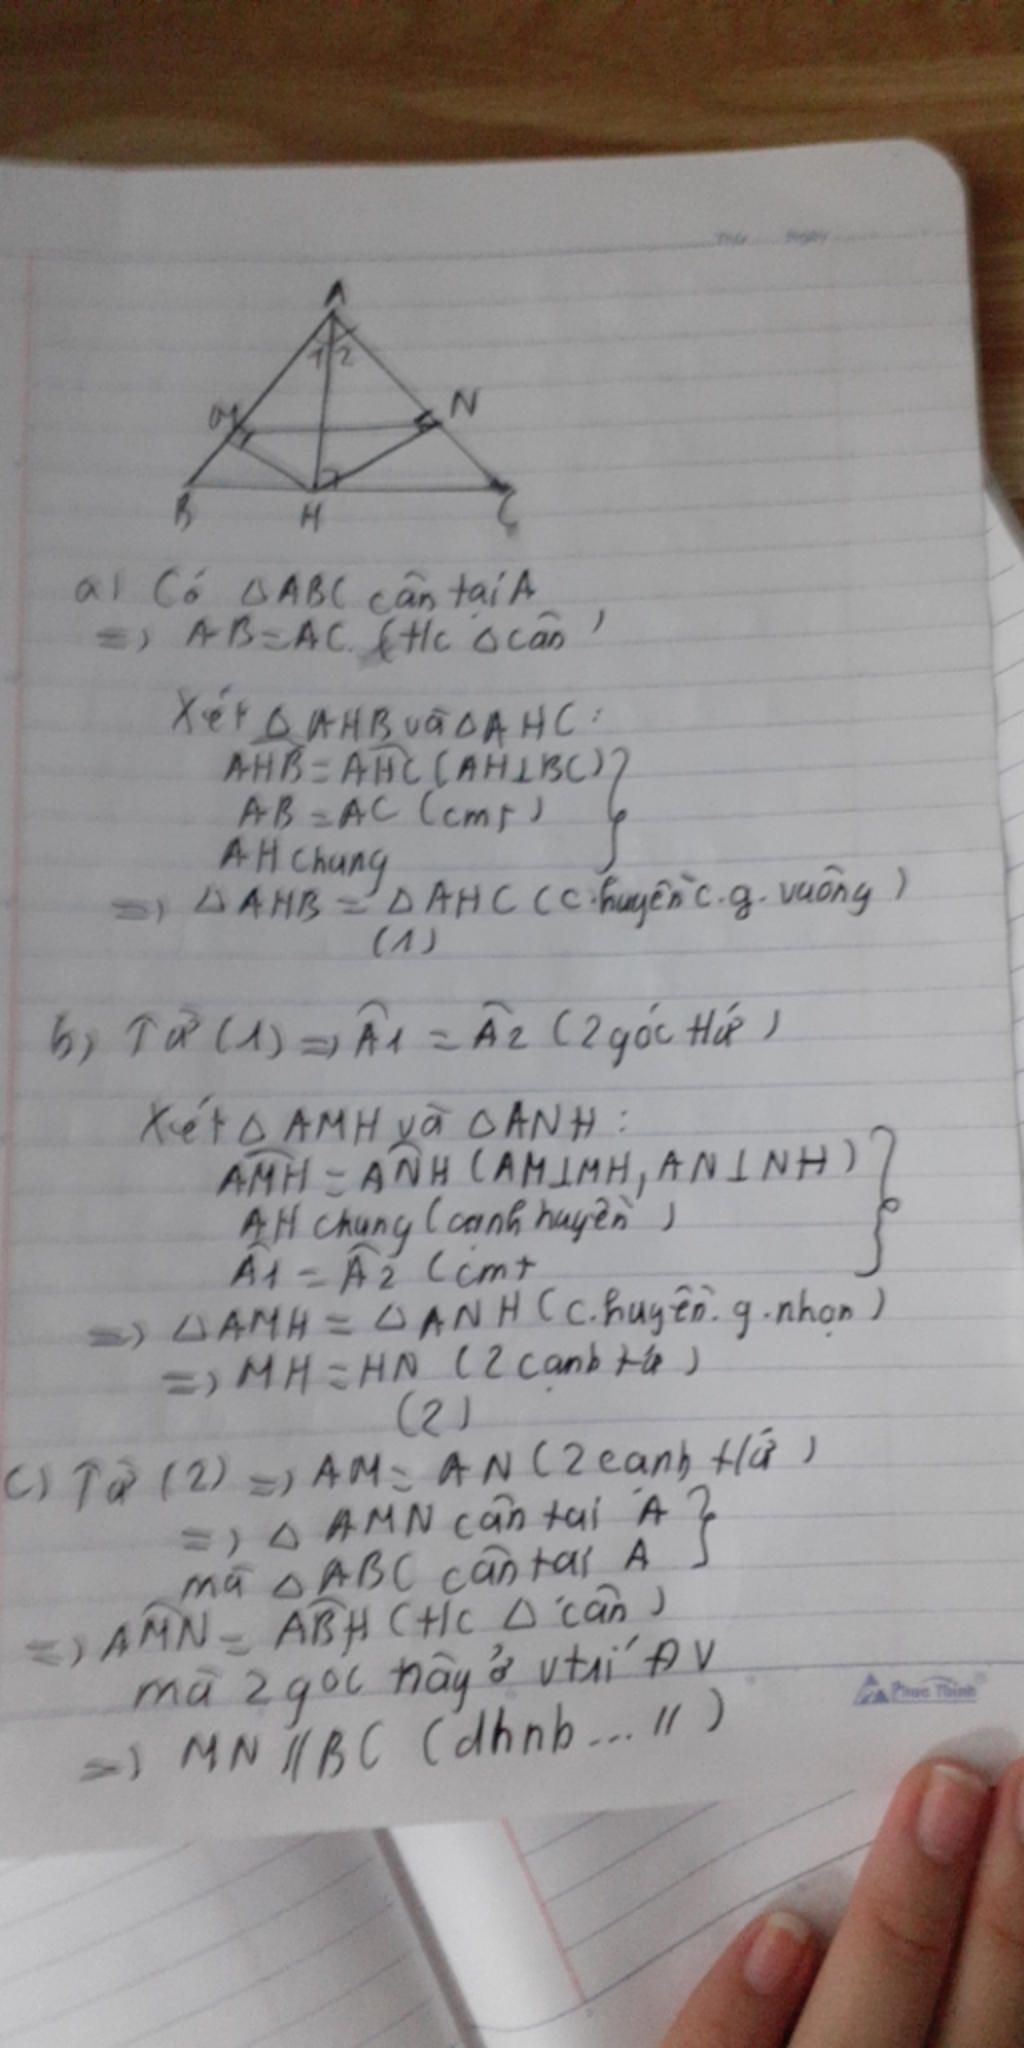 Thứ Ngày
A
1 2
M N
B H C
a) Có △ABC cân tại A
=> AB=AC. (t/c △cân)
Xét △AHB và △AHC:
AHB = AHC (AH⊥BC)
AB = AC (cmt)
AH chung
=> △AHB = △AHC (c.huyền c.g.vuông)
(1)
b, Từ (1) => Â1 = Â2 (2 góc t/ứ)
Xét △AMH và △ANH:
AMH = ANH (AM⊥MH, AN⊥NH)
AH chung (cạnh huyền)
Â1 = Â2 (cmt
=> △AMH = △ANH (c.huyền.g.nhọn)
=> MH = HN (2 cạnh t/ứ)
(2)
c) Từ (2) => AM = AN (2 cạnh t/ứ)
=> △ AMN cân tại A
mà △ABC cân tại A
=> AMN = ABH (t/c △ cân)
mà 2 góc này ở vtrí ĐV
=> MN // BC (dhnb ... //)
Phúc Thịnh